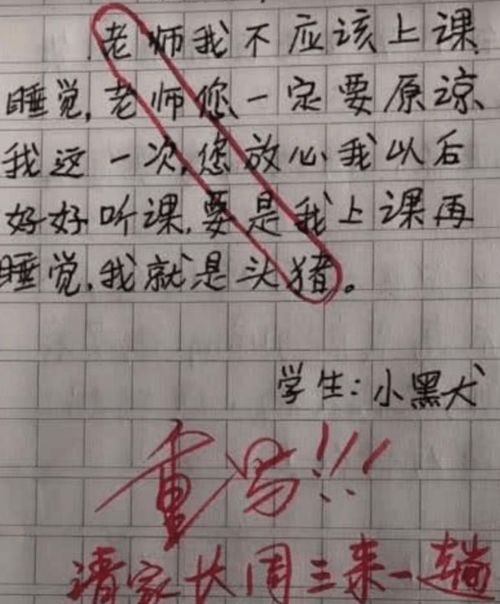 老师我不应该上课
睡觉,老师您一定要原谅
我这一次,您放心我以后
好好听课,要是我上课再
睡觉,我就是头猪。
学生:小黑犬
重写!!!
请家长周三来一趟